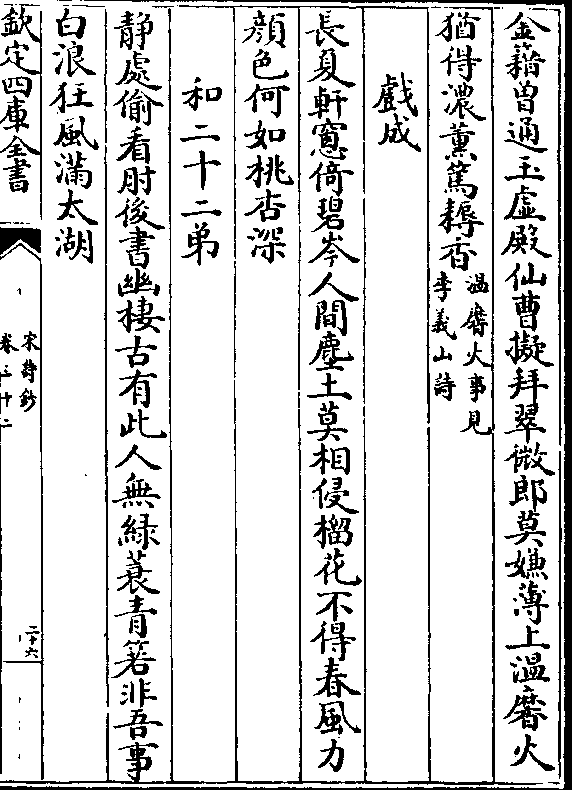 金籍曽通玉虛殿仙曹擬拜翠微郎莫嫌薄上溫黁火
猶得濃薰篤耨香溫黁火事見
李義山詩
戲成
長夏軒窻倚碧岑人間塵土莫相侵榴花不得春風力
顔色何如桃杏深
和二十二弟
静處偷看肘後書幽棲古有此人無緑蓑青箬非吾事
白浪狂風滿太湖
欽定四庫全書
宋詩鈔
二十六